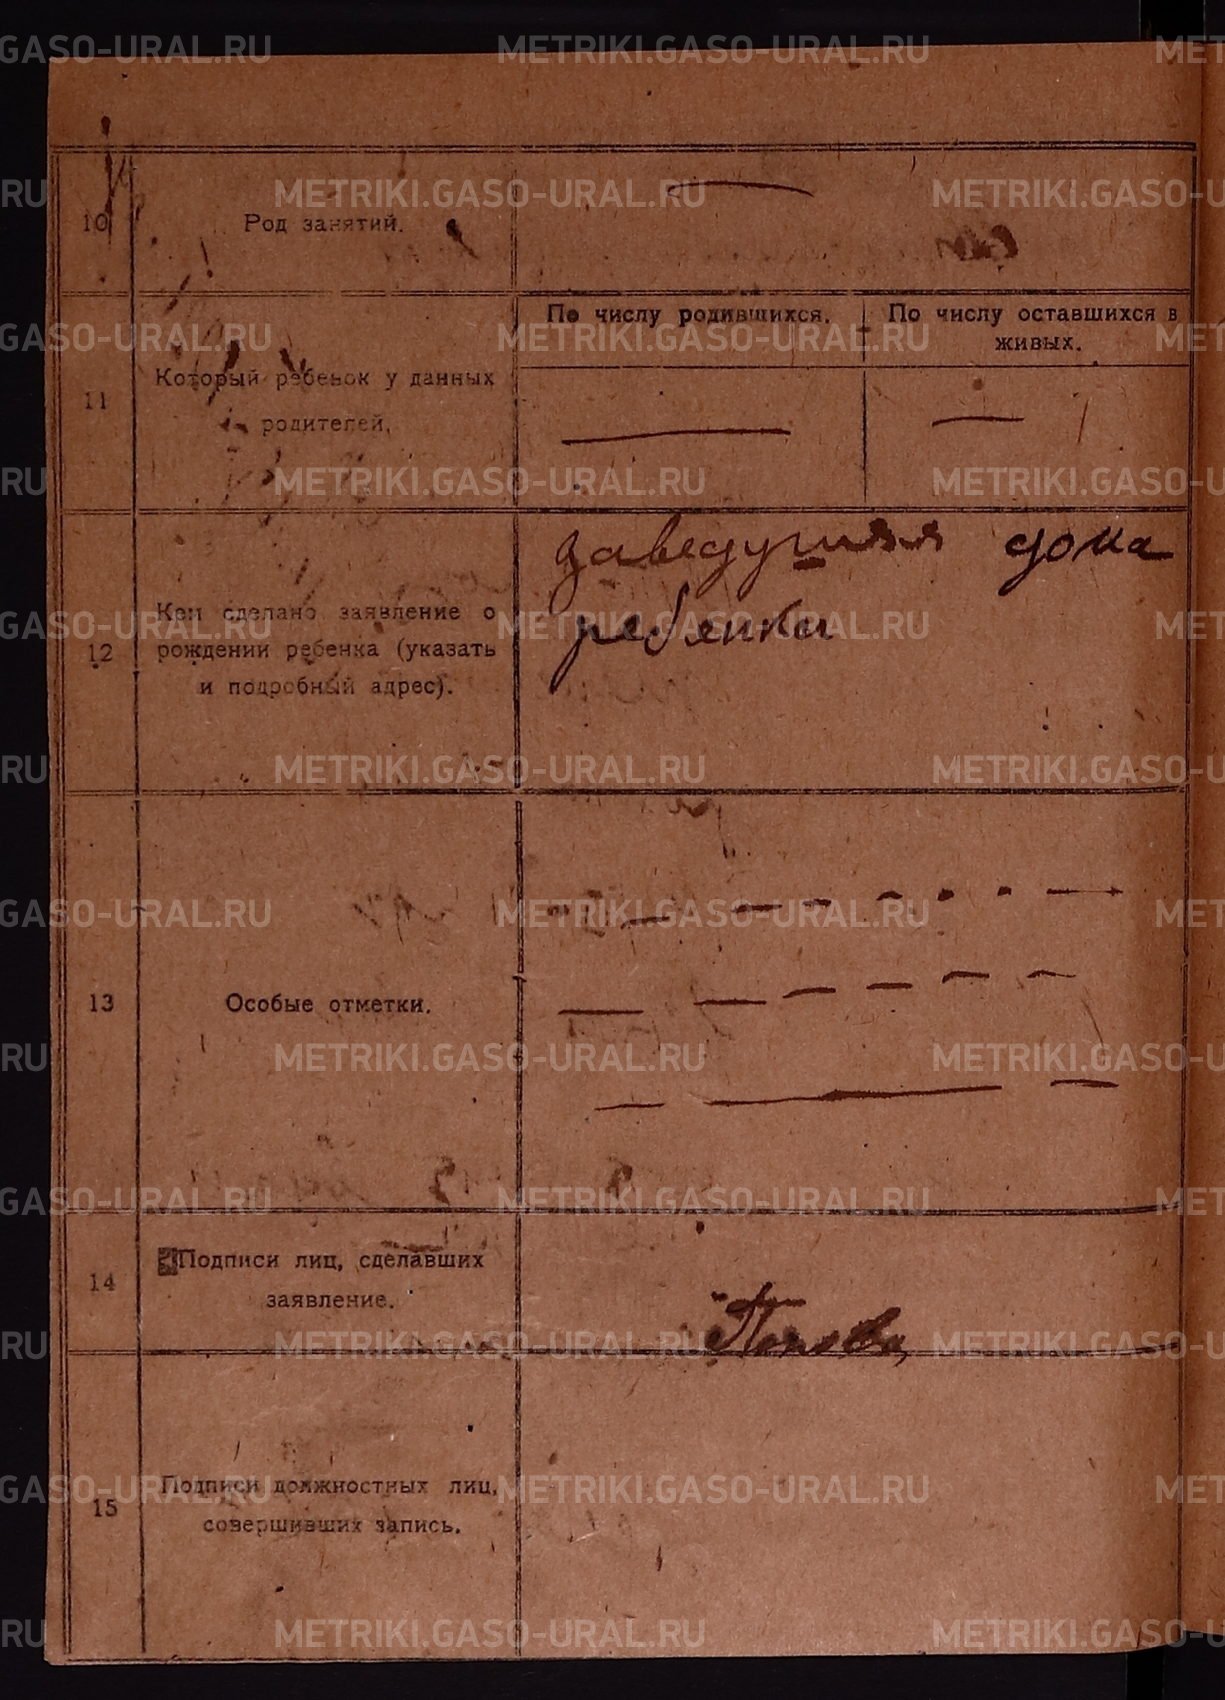 10 Род занятий.
11 Который ребенок у данных родителей.
По числу родившихся.
По числу оставшихся в живых.
12 Кем сделано заявление о рождении ребенка (указать и подробный адрес).
заведущяя дома
ребенка
13 Особые отметки.
14 Подписи лиц, сделавших заявление.
Попова
15 Подписи должностных лиц, совершивших запись.
METRIKI.GASO-URAL.RU